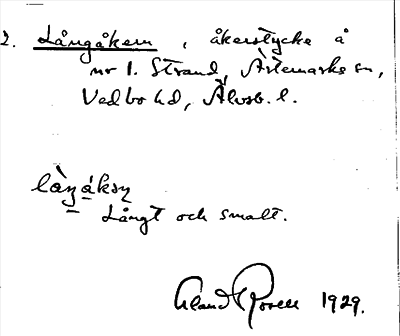 2. Långåkern, åkerstycke å
nr 1. Strand, Ärtemarks sn,
Vedbo hd, Älvsb. l.
làŋákəɳ
Långt och smalt.
Rosell 1929.